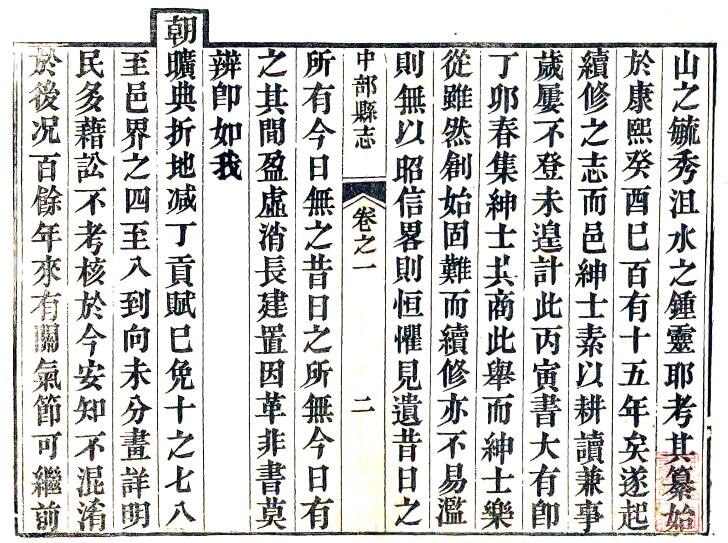 山之毓秀沮水之鍾靈耶考其纂始
於康熙癸酉巳百有十五年矣遂起
續修之志而邑紳士素以耕讀兼事
歲屢不登未遑計此丙寅書大有卽
丁卯春集紳士共商此舉而紳士樂
從雖然創始固難而續修亦不易濫
則無以昭信畧則恒懼見遺昔日之
中部縣志 卷之一 二
所有今日無之昔日之所無今日有
之其間盈虛消長建置因革非書莫
辨卽如我
朝曠典折地減丁貢賦巳免十之七八
至邑界之四至八到向未分畫詳明
民多藉訟不考核於今安知不混淆
於後况百餘年來有關氣節可繼前